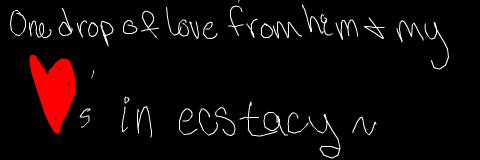 One drop of love from him + my
's in ecstacy ~